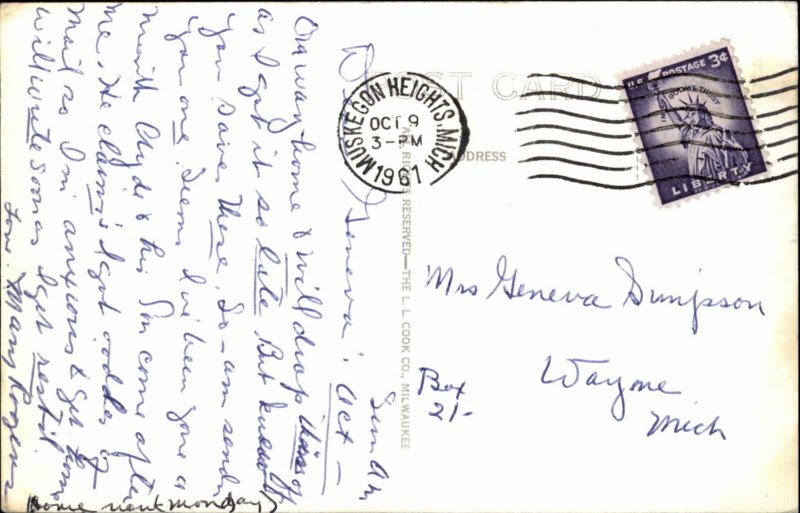 POST CARD
ADDRESS
ALL RIGHTS RESERVED—THE L. L. COOK CO., MILWAUKEE
MUSKEGON HEIGHTS, MICH
OCT 9
3-PM
1961
U.S. POSTAGE 3¢
IN GOD WE TRUST
LIBERTY
Mrs Geneva Simpson
Box
21-
Wayne
Mich
Sun Oct-
Dear Geneva:
On way home & will drop this off
as I got it so late. But know
you save these. So-am sendin
you one. Seems I've been gone a
month Clyde & his Son came after
me. He claims I got oodles of
mail so I'm anxious to get home
will write soon as I get rest'd
Love. Mary Rogers
(Home next monday)